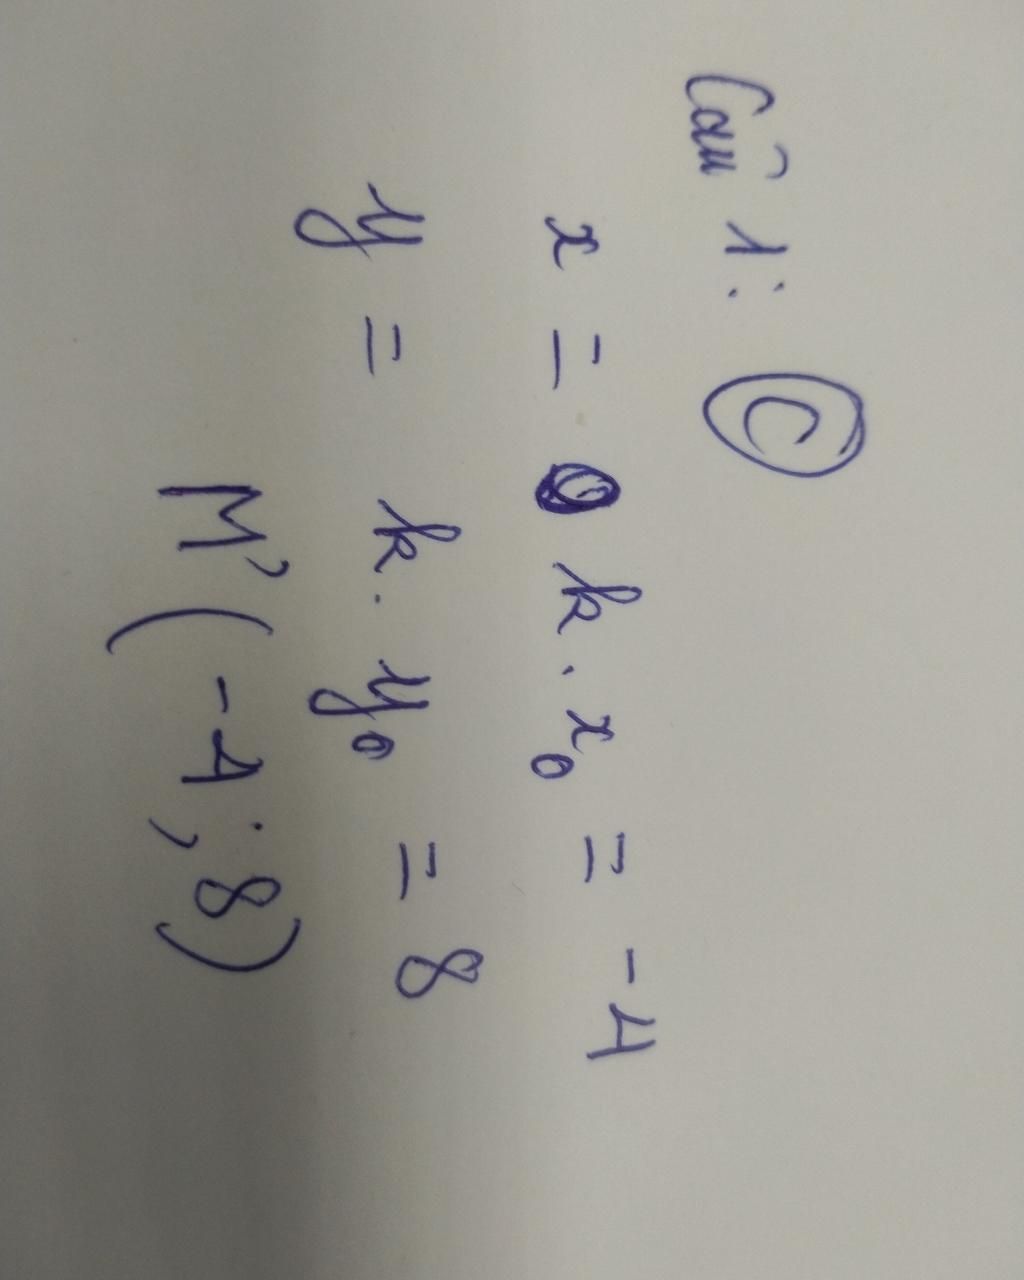 Câu 1: C
x = k . x₀ = -4
y = k . y₀ = 8
M' ( -4 ; 8 )